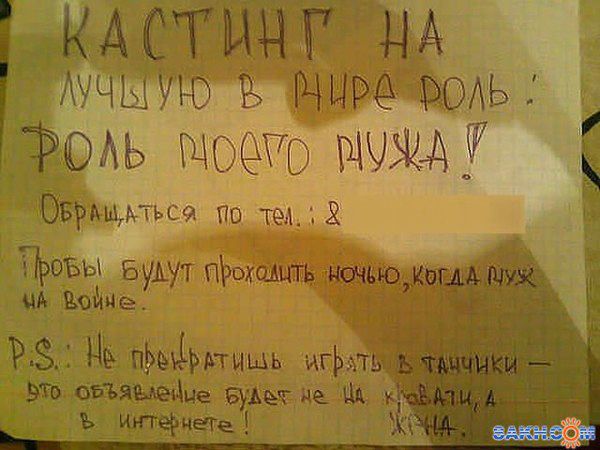 КАСТИНГ НА
ЛУЧШУЮ В МИРЕ РОЛЬ:
РОЛЬ МОЕГО МУЖА!
ОБРАЩАТЬСЯ ПО ТЕЛ.: 8
ПРОБЫ БУДУТ ПРОХОДИТЬ НОЧЬЮ, КОГДА МУЖ
НА ВОЙНЕ.
P.S.: НЕ ПРЕКРАТИШЬ ИГРАТЬ В ТАНЧИКИ —
ЭТО ОБЪЯВЛЕНИЕ БУДЕТ НЕ НА КРОВАТИ, А
В ИНТЕРНЕТЕ! ЖЕНА.
SAKH.COM